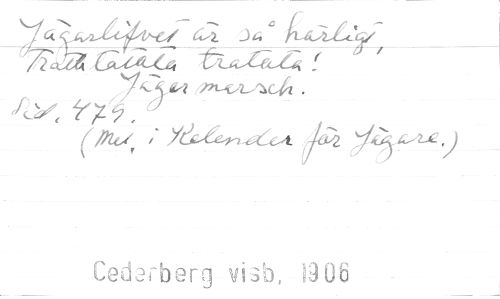 Jägarlifvet är så härligt,
Trattatata tratata!
Jägarmarsch.
Sid. 479.
(Mel. i Kalender för Jägare.)
Cederberg visb, 1906